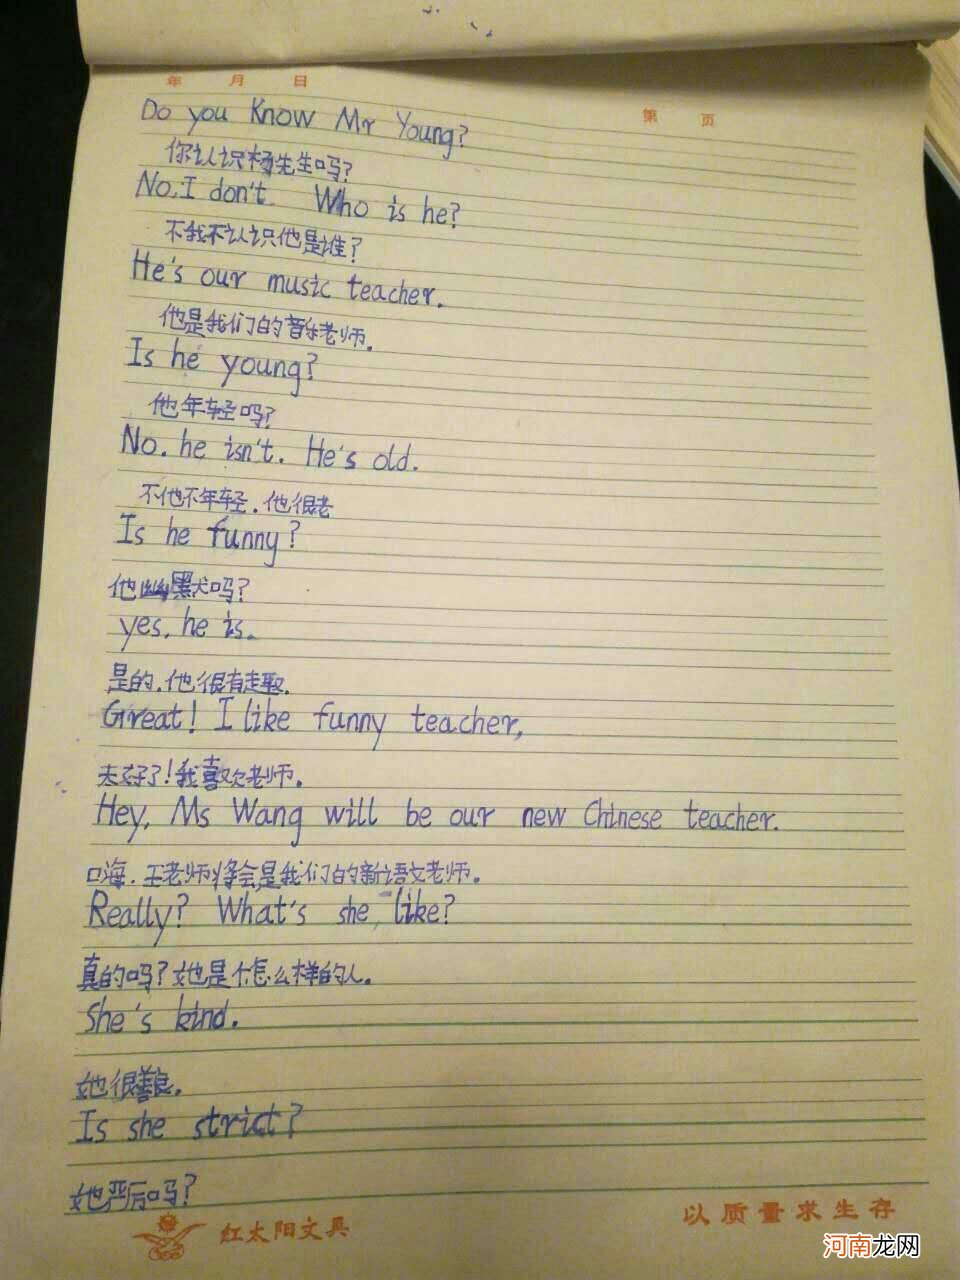 年 月 日
第 页
Do you Know Mr Young?
你认识杨先生吗?
No.I don't. Who is he?
不我不认识他是谁?
He's our music teacher.
他是我们的音乐老师。
Is he young?
他年轻吗?
No. he isn't. He's old.
不他不年轻.他很老
Is he funny?
他幽默吗?
yes. he is.
是的.他很有趣.
Great! I like funny teacher,
太好了!我喜欢老师。
Hey, Ms Wang will be our new Chinese teacher.
嗨.王老师将会是我们的新语文老师。
Really? What's she like?
真的吗?她是个怎么样的人。
She's kind.
她很善良.
Is she strict?
她严厉吗?
红太阳文具
以质量求生存
河南龙网